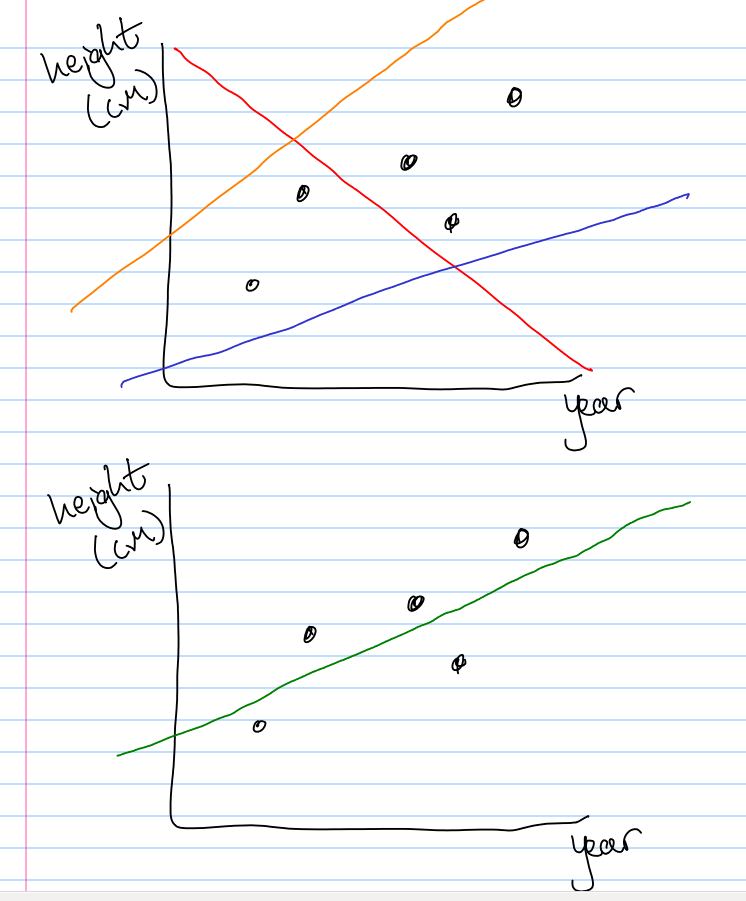 height
(cm)
year
height
(cm)
year